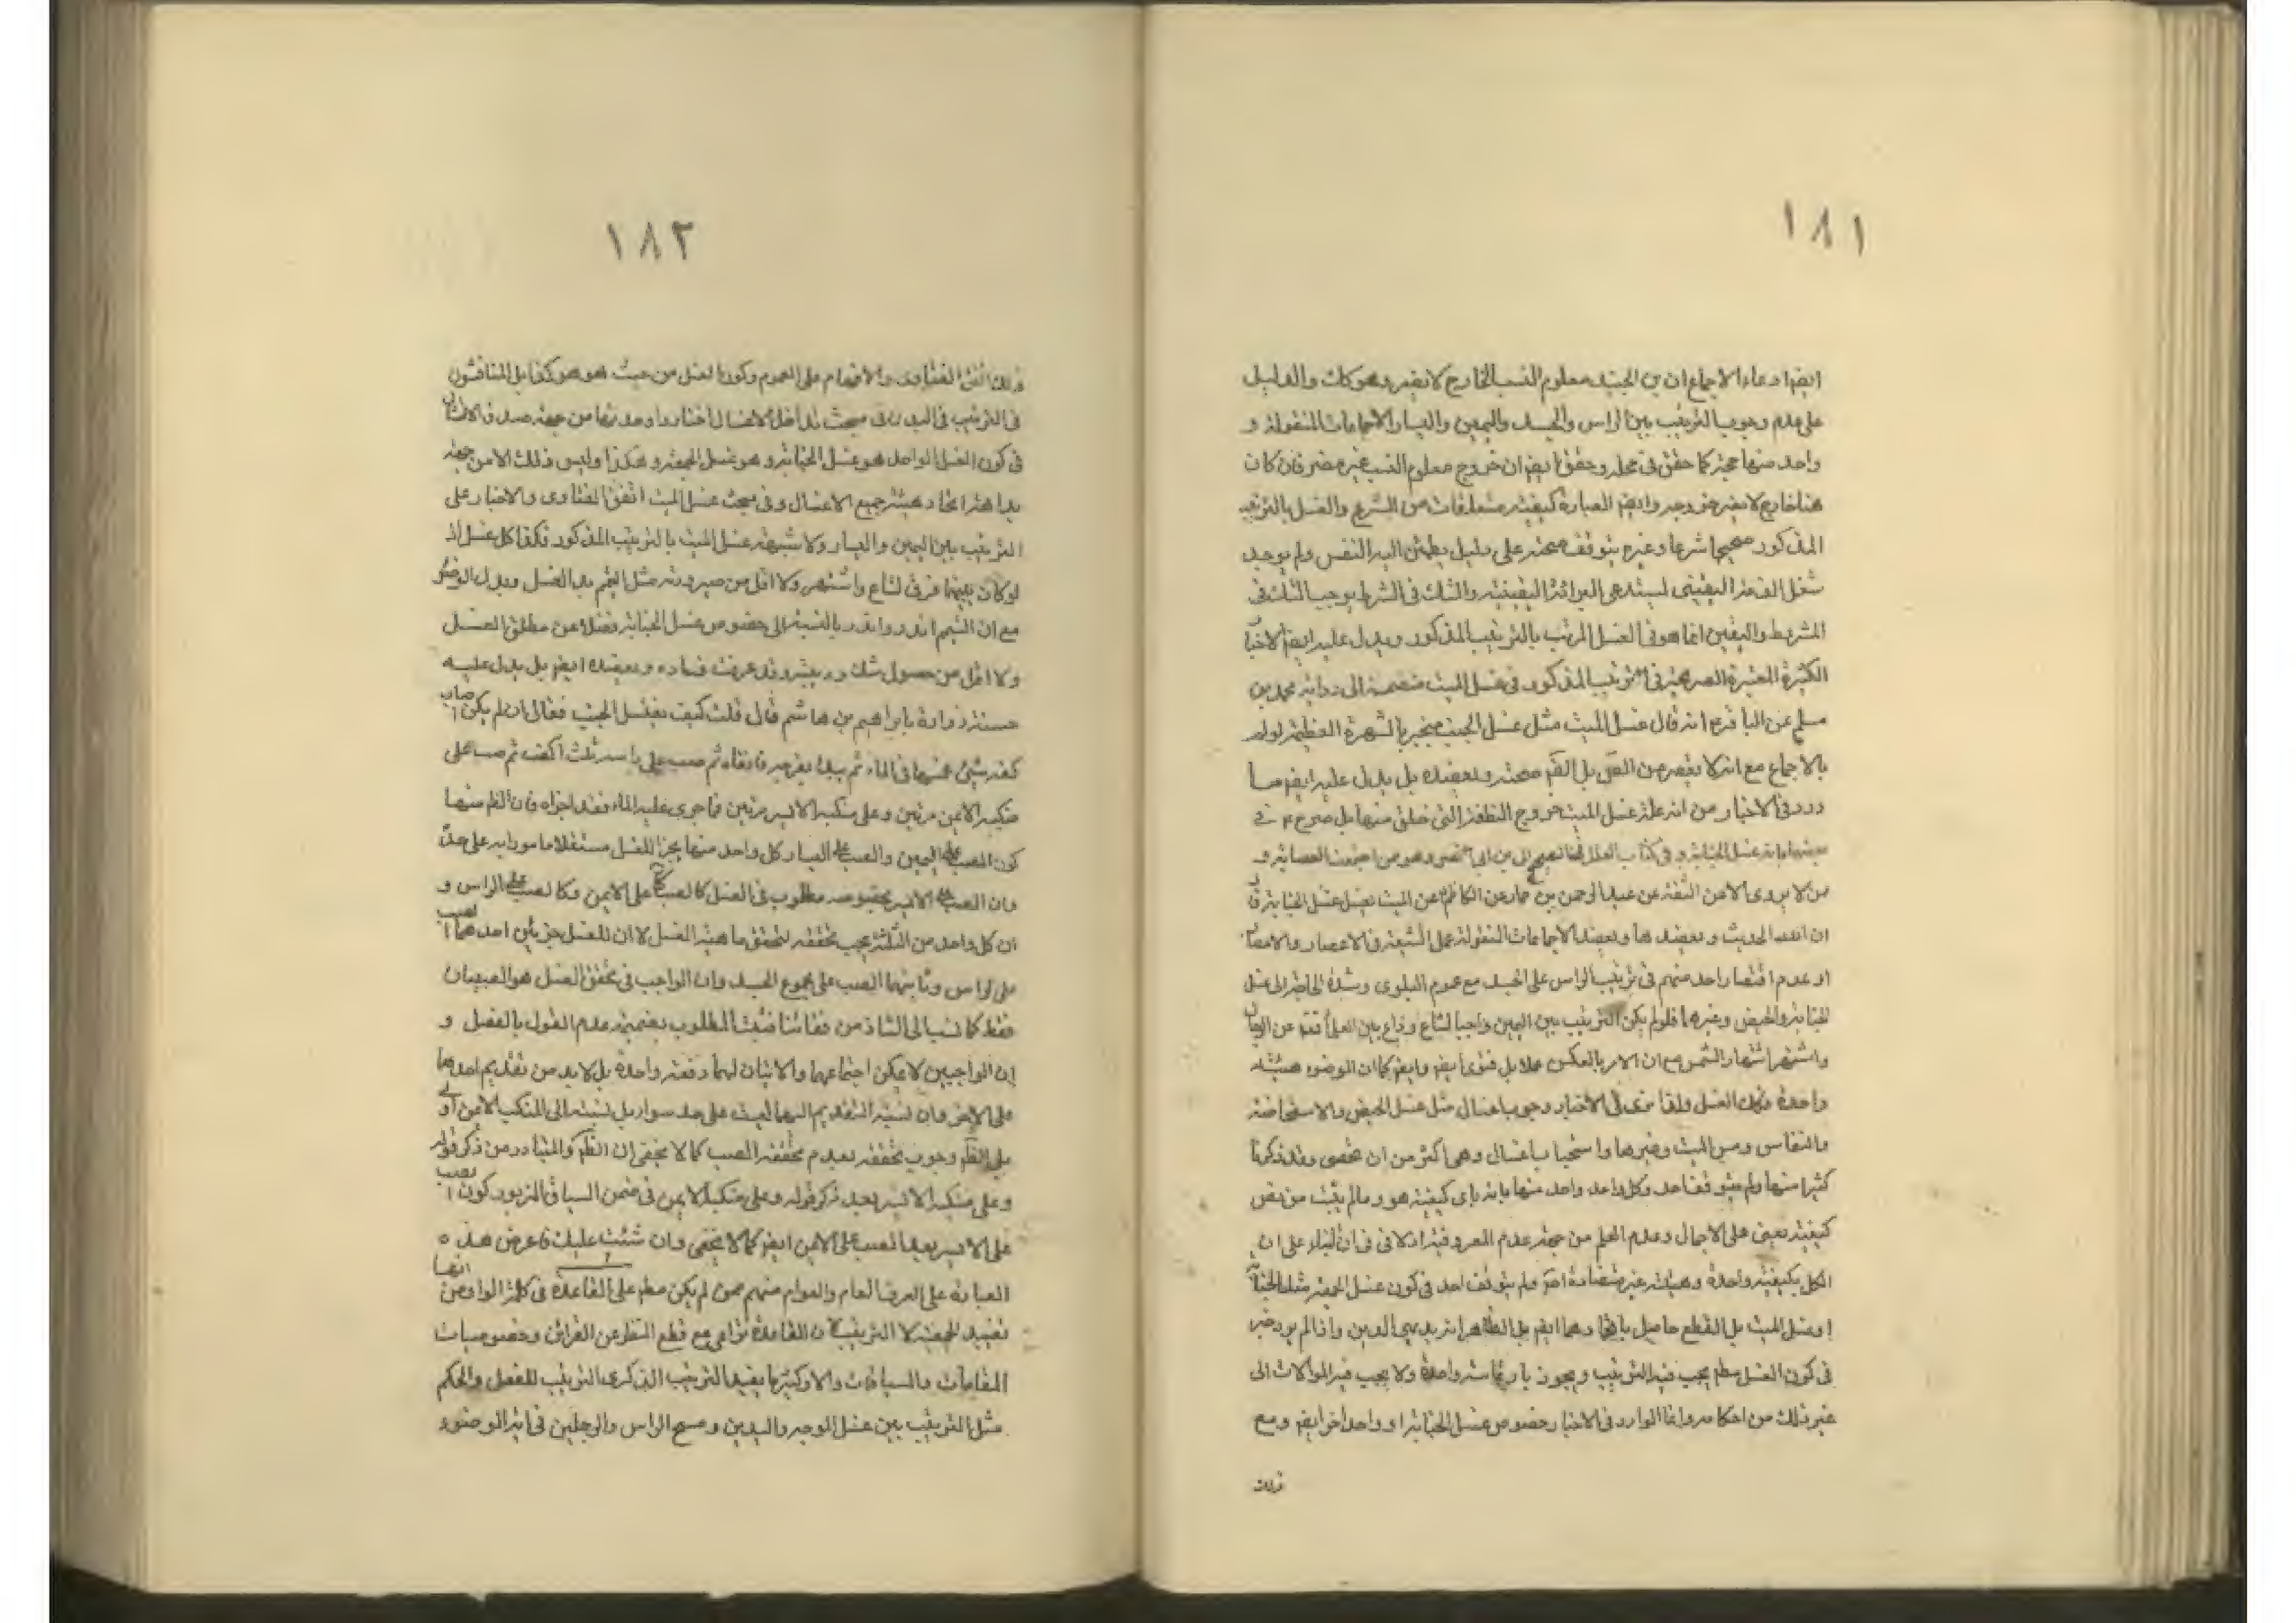 ١٨١
ايضا ادعاء الاجماع ان من الجنيد معلوم النسب الخارج لا يضر وهو كاف والدليل
على عدم وجوب الترتيب بين الراس والجسد واليمين واليسار الاجماعات المنقولة و
واحد منها حجة كما حقق في محله وحقق ايضا ان خروج معلوم النسب غير مضر فان كان
هنا خارج لا يضر خروجه وايضا العبادة كيفية متعلقات من الشرع والغسل بالترتيب
المذكور صحيح شرعا وغيره يتوقف صحته على دليل يطمئن اليه النفس ولم يوجد
شغل الذمة اليقيني يستدعي البرائة اليقينية والشك في الشرط يوجب الشك في
المشروط واليقين انما هو في الغسل المرتب بالترتيب المذكور ويدل عليه ايضا الاخبار
الكثيرة المعتبرة الصريحة في الترتيب المذكور في غسل الميت منضمة الى رواية محمد بن
مسلم عن الباقر ع انه قال غسل الميت مثل غسل الجنب منجبر بالشهرة العظيمة لو لم
بالاجماع مع انه لا يقصر من بل صحته ويعضده بل يدل عليه ايضا ما
ورد في الاخبار من انه علة غسل الميت خروج النطفة التي خلق منها بل صرح في
بعضها بانه غسل الجنابة وفي كتاب العلل
من لا يروي الا عن الثقة عن عبد الرحمن بن حماد عن الكاظم عن الميت يغسل غسل الجنابة
ان الحديث ويعضدها ويعضد الاجماعات المنقولة عمل الشيعة في الاعصار والامصار
او عدم اقتصار واحد منهم في ترتيب الراس على الجسد مع عموم البلوى وشدة الحاجة الى غسل
الجنابة والحيض وغيرها فلو لم يكن الترتيب بين اليمين واجبا لشاع وذاع بين العلماء فضلا عن
واشتهر اشتهار الشمس مع ان الامر بالعكس عملا بل فتوى ايضا وايضا كما ان الوضوء هيئته
واحدة فكذلك الغسل ولذا نرى في الاخبار وجوب اغسال مثل غسل الحيض والاستحاضة
والنفاس ومس الميت وغيرها واستحباب اغسال وهي اكثر من ان تحصى وقد ذكرنا
كثيرا منها ولم يتوقف احد وكل واحد واحد منها بانه باي كيفية هو وما لم يثبت من نص
كيفية بقي على الاجمال وعدم العلم من جهة عدم المعروفية اذ لا في ان البناء على ان
الكل بكيفية واحدة وهيئة غير متضادة ولم يتوقف احد في كون غسل الجمعة مثل الجنابة
او غسل الميت بل القطع حاصل باتحادهما ايضا بل الظاهر انه بديهي الدين واذا لم يرد خبر
في كون الغسل يجب فيه الترتيب ويجوز بارتماسة واحدة ولا يجب فيه الموالات الى
غير ذلك من احكامه وانما الوارد في الاخبار خصوص غسل الجنابة او واحد اخر ايضا ومع
ذلك
١٨٢
ذلك اتفق الفتاوى والافهام على العموم وكون الغسل من حيث هو هو كذا بل المناقشون
في الترتيب في البدن في مبحث تداخل الاغسال اختاروا وحدتها من جهة صدق الامتثال
في كون الغسل الواحد هو غسل الجنابة وهو غسل الجمعة وهكذا وليس ذلك الا من جهة
بداهة اتحاد هيئة جميع الاغسال وفي مبحث غسل الميت اتفق الفتاوى والاخبار على
الترتيب بين اليمين واليسار ولا شبهة غسل الميت بالترتيب المذكور فكذا كل غسل اذ
لو كان بينهما فرق لشاع واشتهر ولا اقل من صيرورته مثل التيمم بدل الغسل وبدل الوضوء
مع ان التيمم اندر واندر بالنسبة الى خصوص غسل الجنابة فضلا عن مطلق الغسل
ولا اقل من حصول شك وريبة وقد عرفت فساده ويعضده ايضا بل يدل عليه
حسنة زرارة بابراهيم بن هاشم قال قلت كيف يغتسل الجنب فقال ان لم يكن اصاب
كفه شيء غمسها في الماء ثم بدأ بفرجه فانقاه ثم صب على راسه ثلث اكف ثم صب على
منكبه الايمن مرتين وعلى منكبه الايسر مرتين فما جرى عليه الماء فقد اجزاه فان الظم منها
كون الصب على اليمين والصب على اليسار كل واحد منها بجزء للغسل مستقلا مامور به على حدة
وان الصب على الايسر بخصوصه مطلوب في الغسل كالصب على الايمن وكالصب على الراس و
ان كل واحد من الثلثة يجب تحققه لتحقق ماهية الغسل لا ان للغسل جزئين احدهما الصب
على الراس وثانيهما الصب على مجموع الجسد وان الواجب في تحقق الغسل هو الصبان
فقط كما نسب الى الشاذ من فقهائنا فثبت المطلوب بضميمة عدم القول بالفصل و
ان الواجبين لا يمكن اجتماعهما والاتيان بهما دفعة واحدة بل لا بد من تقديم احدهما
على الاخر وان نسبة التقديم اليهما ليست على حد سواء بل نسبته الى المنكب الايمن اولى
بل الظم وجوب تحققه بعدم تحققه الصب كما لا يخفى ان الظم والمتبادر من ذكر قوله
وعلى منكبه الايسر بعد ذكر قوله وعلى منكبه الايمن في ضمن السياق المزبور كون الصب
على الايسر بعد الصب على الايمن ايضا كما لا يخفى وان شئت عليك فاعرض هذه
العبارة على العرف العام والعوام منهم ممن لم يكن مطلع على القاعدة في كلمة الواو من انها
تفيد الجمعية لا الترتيب لان القاعدة تراعى مع قطع النظر عن القرائن وخصوصيات
المقامات والسياقات والا وكثيرا يفيد الترتيب الذكرى الترتيب للفعل والحكم
مثل الترتيب بين غسل الوجه واليدين ومسح الراس والرجلين في اية الوضوء